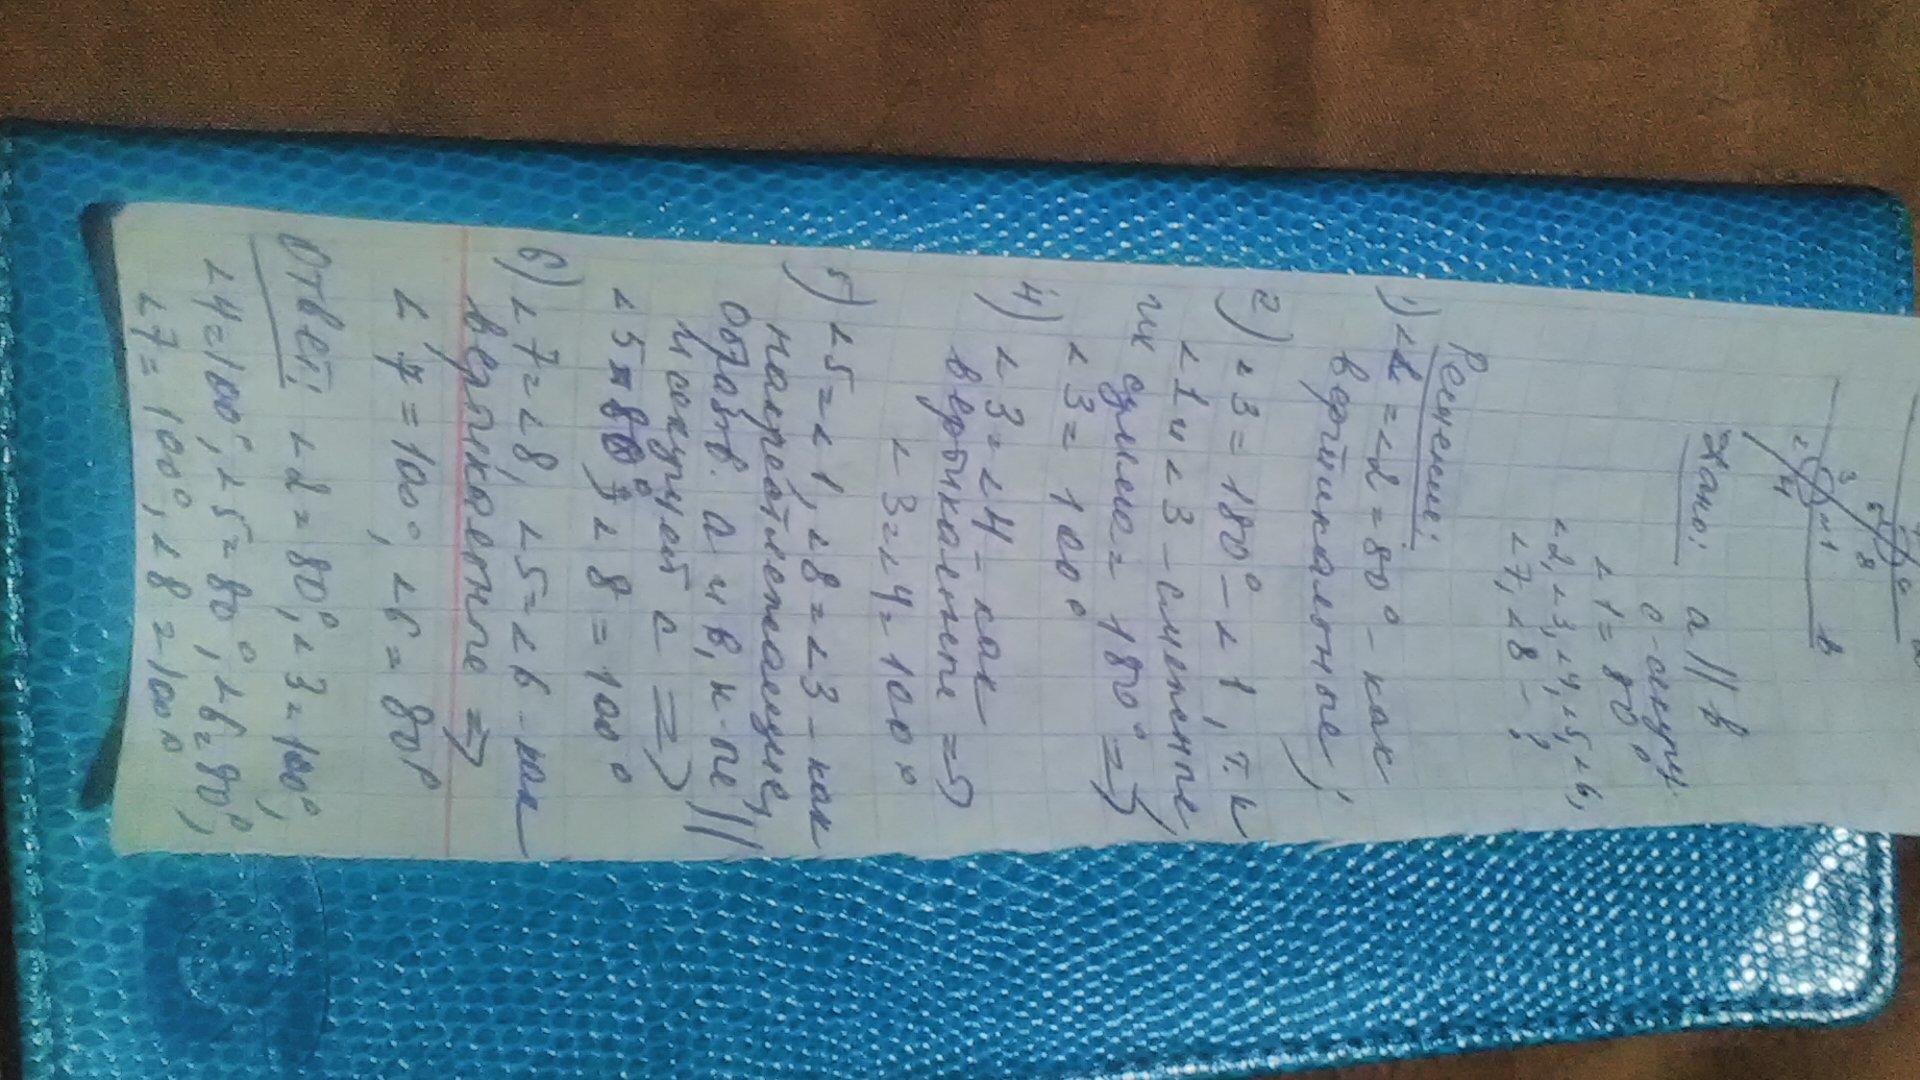 2 3 5
4 1 8 в
Дано: a || в
с - секущ.
∠1 = 80°
∠2, ∠3, ∠4, ∠5, ∠6,
∠7, ∠8 - ?
Решение:
1) ∠1 = ∠2 = 80° - как
вертикальные;
2) ∠3 = 180° - ∠1, т.к
∠1 и ∠3 - смежные
их сумма = 180° =>
∠3 = 100°
4) ∠3 = ∠4 - как
вертикальные =>
∠3 = ∠4 = 100°
5) ∠5 = ∠1, ∠8 = ∠3 - как
накрест лежащие,
образ. a и в, к-ые ||
и секущей с =>
∠5 = 80°, ∠8 = 100°
6) ∠7 = ∠8, ∠5 = ∠6 - как
вертикальные =>
∠7 = 100°, ∠6 = 80°
Ответ: ∠2 = 80°, ∠3 = 100°,
∠4 = 100°, ∠5 = 80°, ∠6 = 80°,
∠7 = 100°, ∠8 = 100°